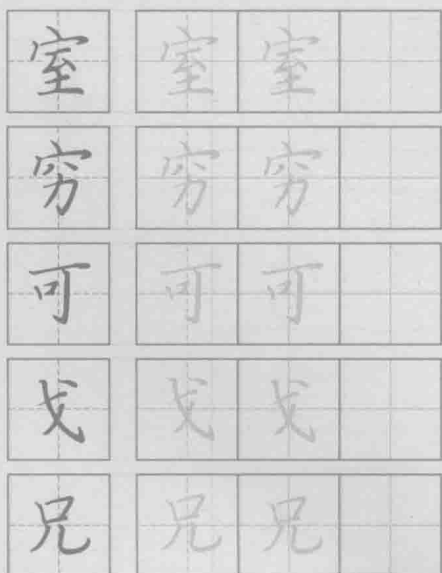 室 室 室
穷 穷 穷
可 可 可
戈 戈 戈
兄 兄 兄